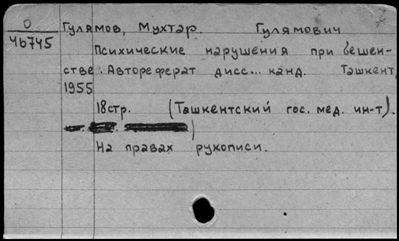 О
46745
Гулямов, Мухтар Гулямович
Психические нарушения при бешен-
стве. Автореферат дисс... канд. Ташкент,
1955
18стр. (Ташкентский гос. мед. ин-т).
На правах рукописи.